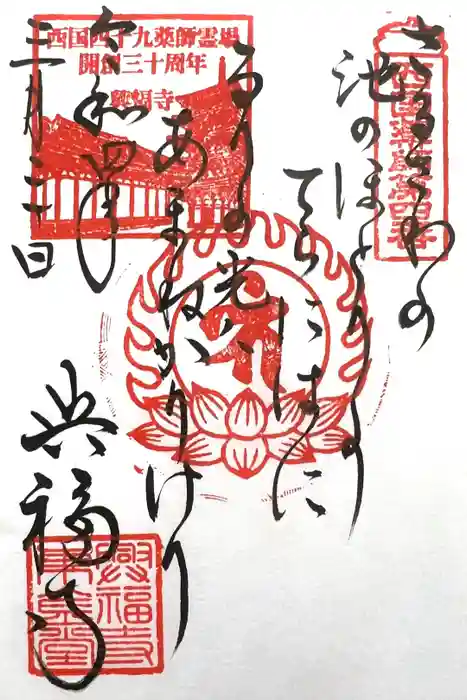 西国薬師第四番
さるさわの
池のほとりの
てらにはに
るりの光ハ
あまねかりけり
西国四十九薬師霊場
開創三十周年
興福寺
令和四年
三月二日
興福寺
興福寺
東金堂